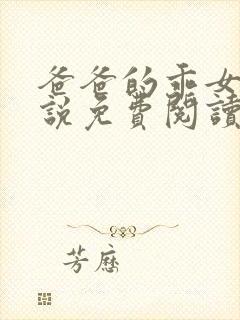 爸爸的乖女
說免費閱讀
芳歷